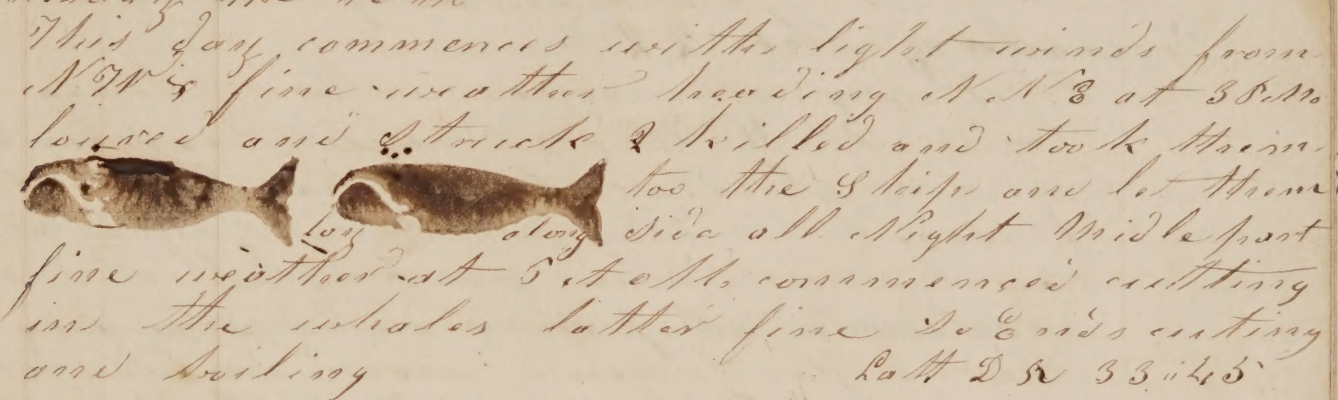 This day commences with light winds from
N W & fine weather heading N N E at 3 P M
lowred and Struck 2 killed and took them
too the Ship and let them
lay along side all Night Midle part
fine weather at 5 A M commenced cutting
in the whales latter fine So Ends cutting
and boiling Latt D R 33 45